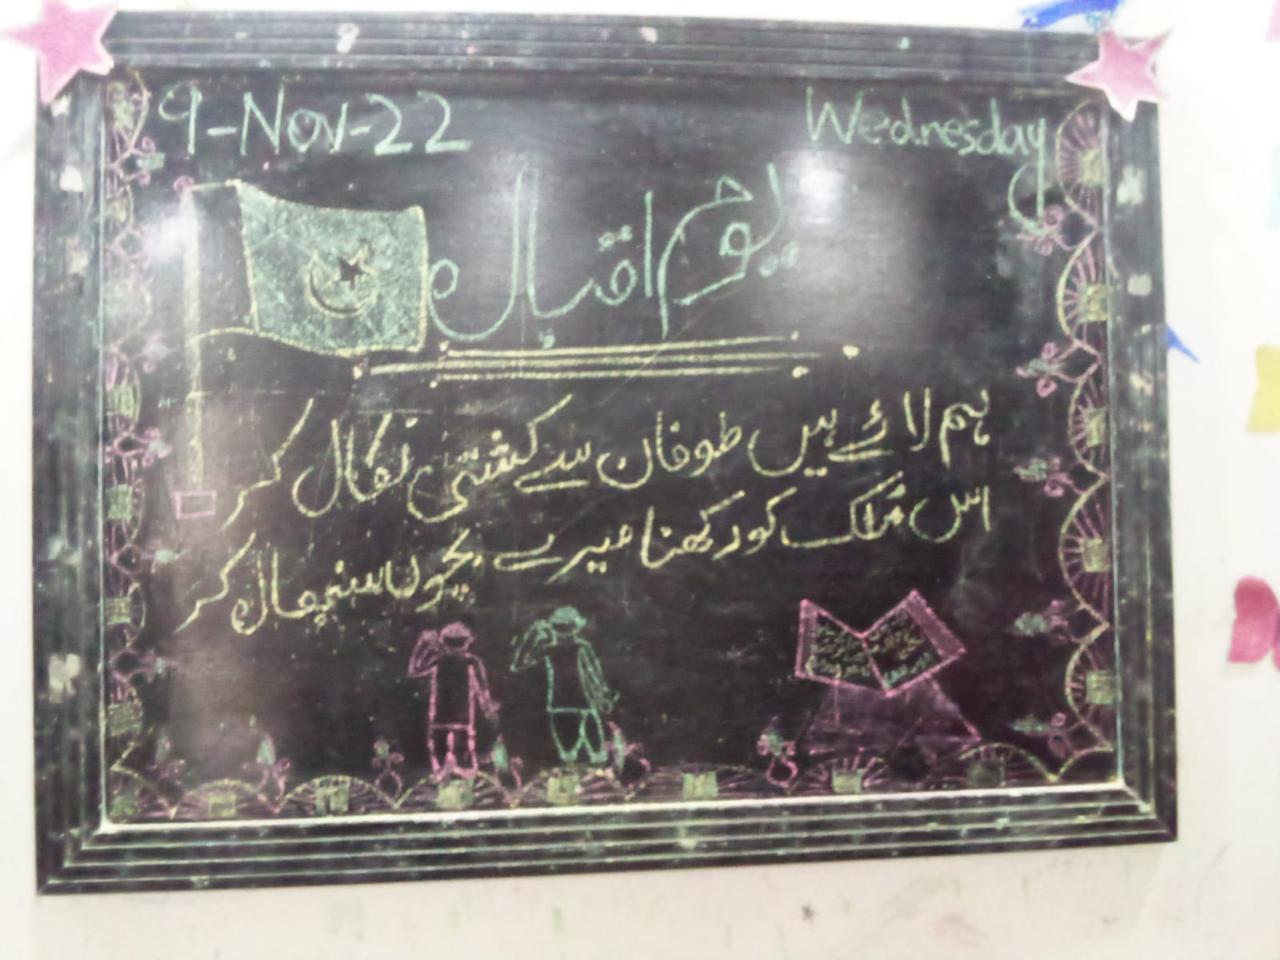 9-Nov-22
Wednesday
یوم اقبال
ہم لائے ہیں طوفان سے کشتی نکال کر
اس مُلک کو رکھنا میرے بچوں سنبھال کر